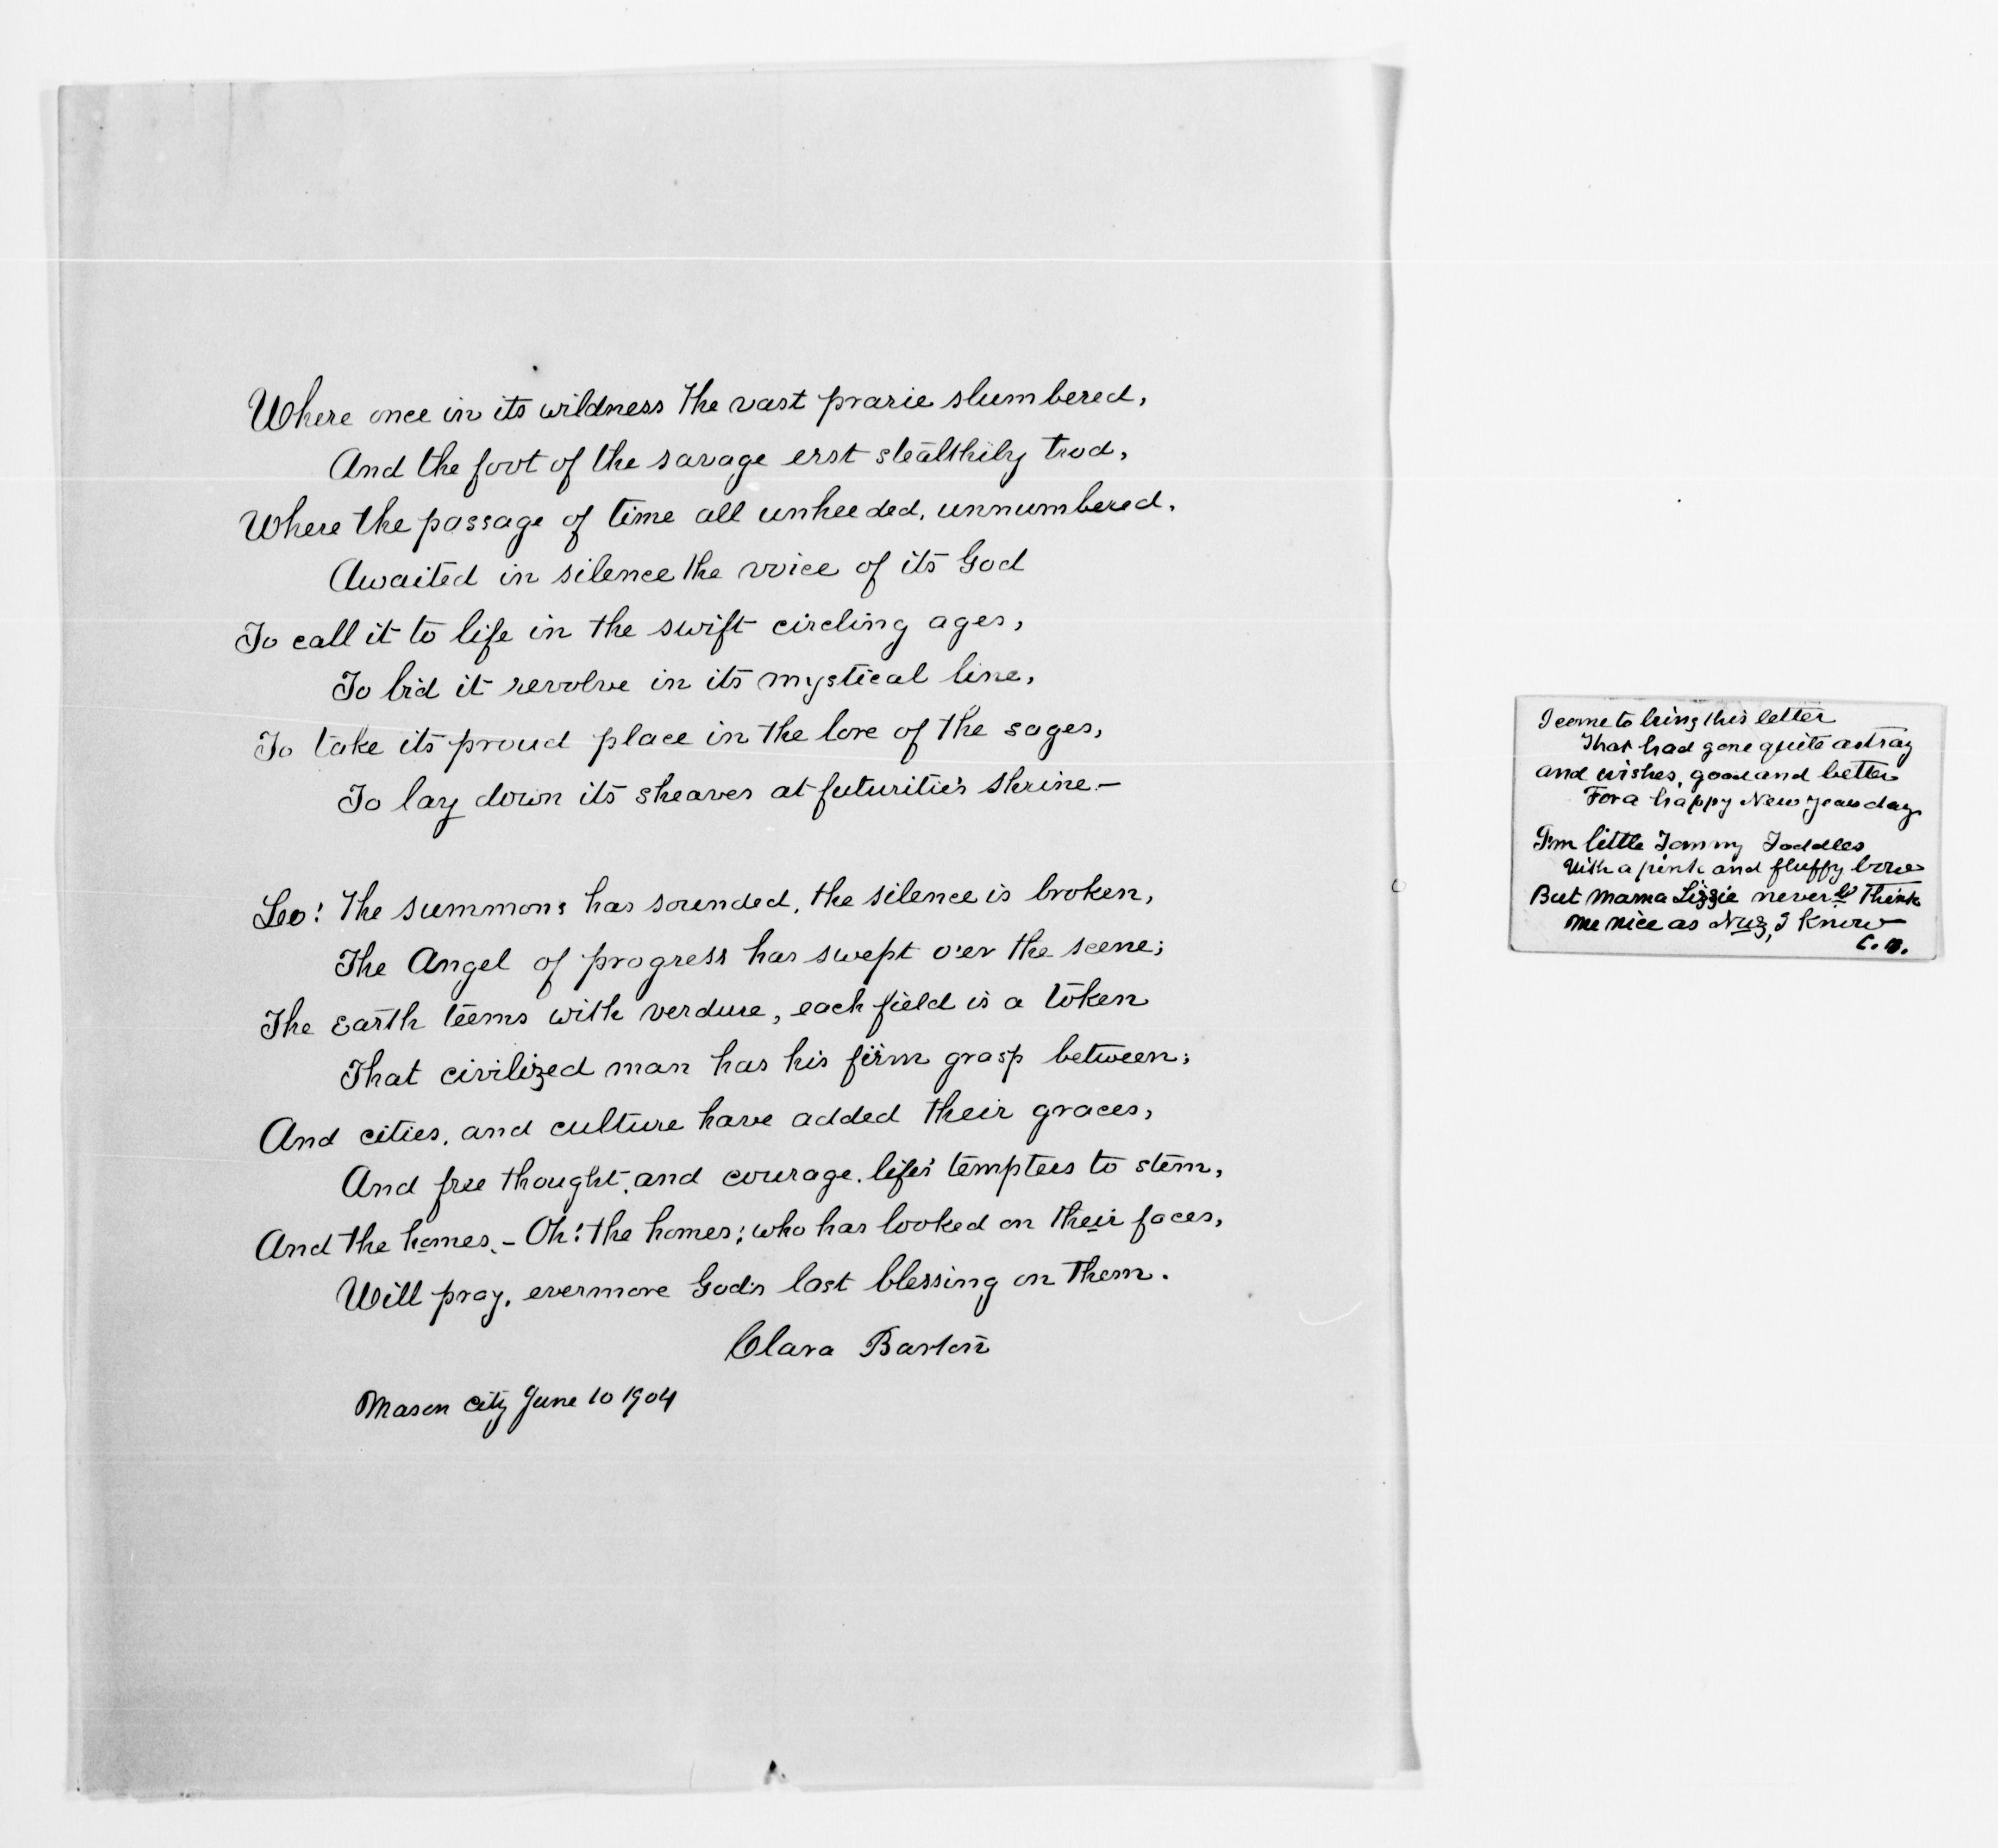 Where once in its wildness the vast prarie slumbered,
And the foot of the savage erst stealthily trod,
Where the passage of time all unheeded, unnumbered,
Awaited in silence the voice of its God
To call it to life in the swift circling ages,
To bid it revolve in its mystical line,
To take its proud place in the lore of the sages,
To lay down its sheaves at futurities shrine—
Lo! The summons has sounded, the silence is broken,
The Angel of progress has swept o'er the scene;
The Earth teems with verdure, each field is a token
That civilized man has his firm grasp between;
And cities, and culture have added their graces,
And free thought, and courage, life's tempters to stem,
And the homes,— Oh! the homes; who has looked on their faces,
Will pray, evermore God's last blessing on them.
Clara Barton
Mason City June 10 1904
I come to bring this letter
That had gone quite astray
and wishes, good and better
For a happy New Years day
I'm little Tommy Toddles
With a pink and fluffy bow
But Mama Lizzie never'll think
me nice as Nug, I know
C. B.